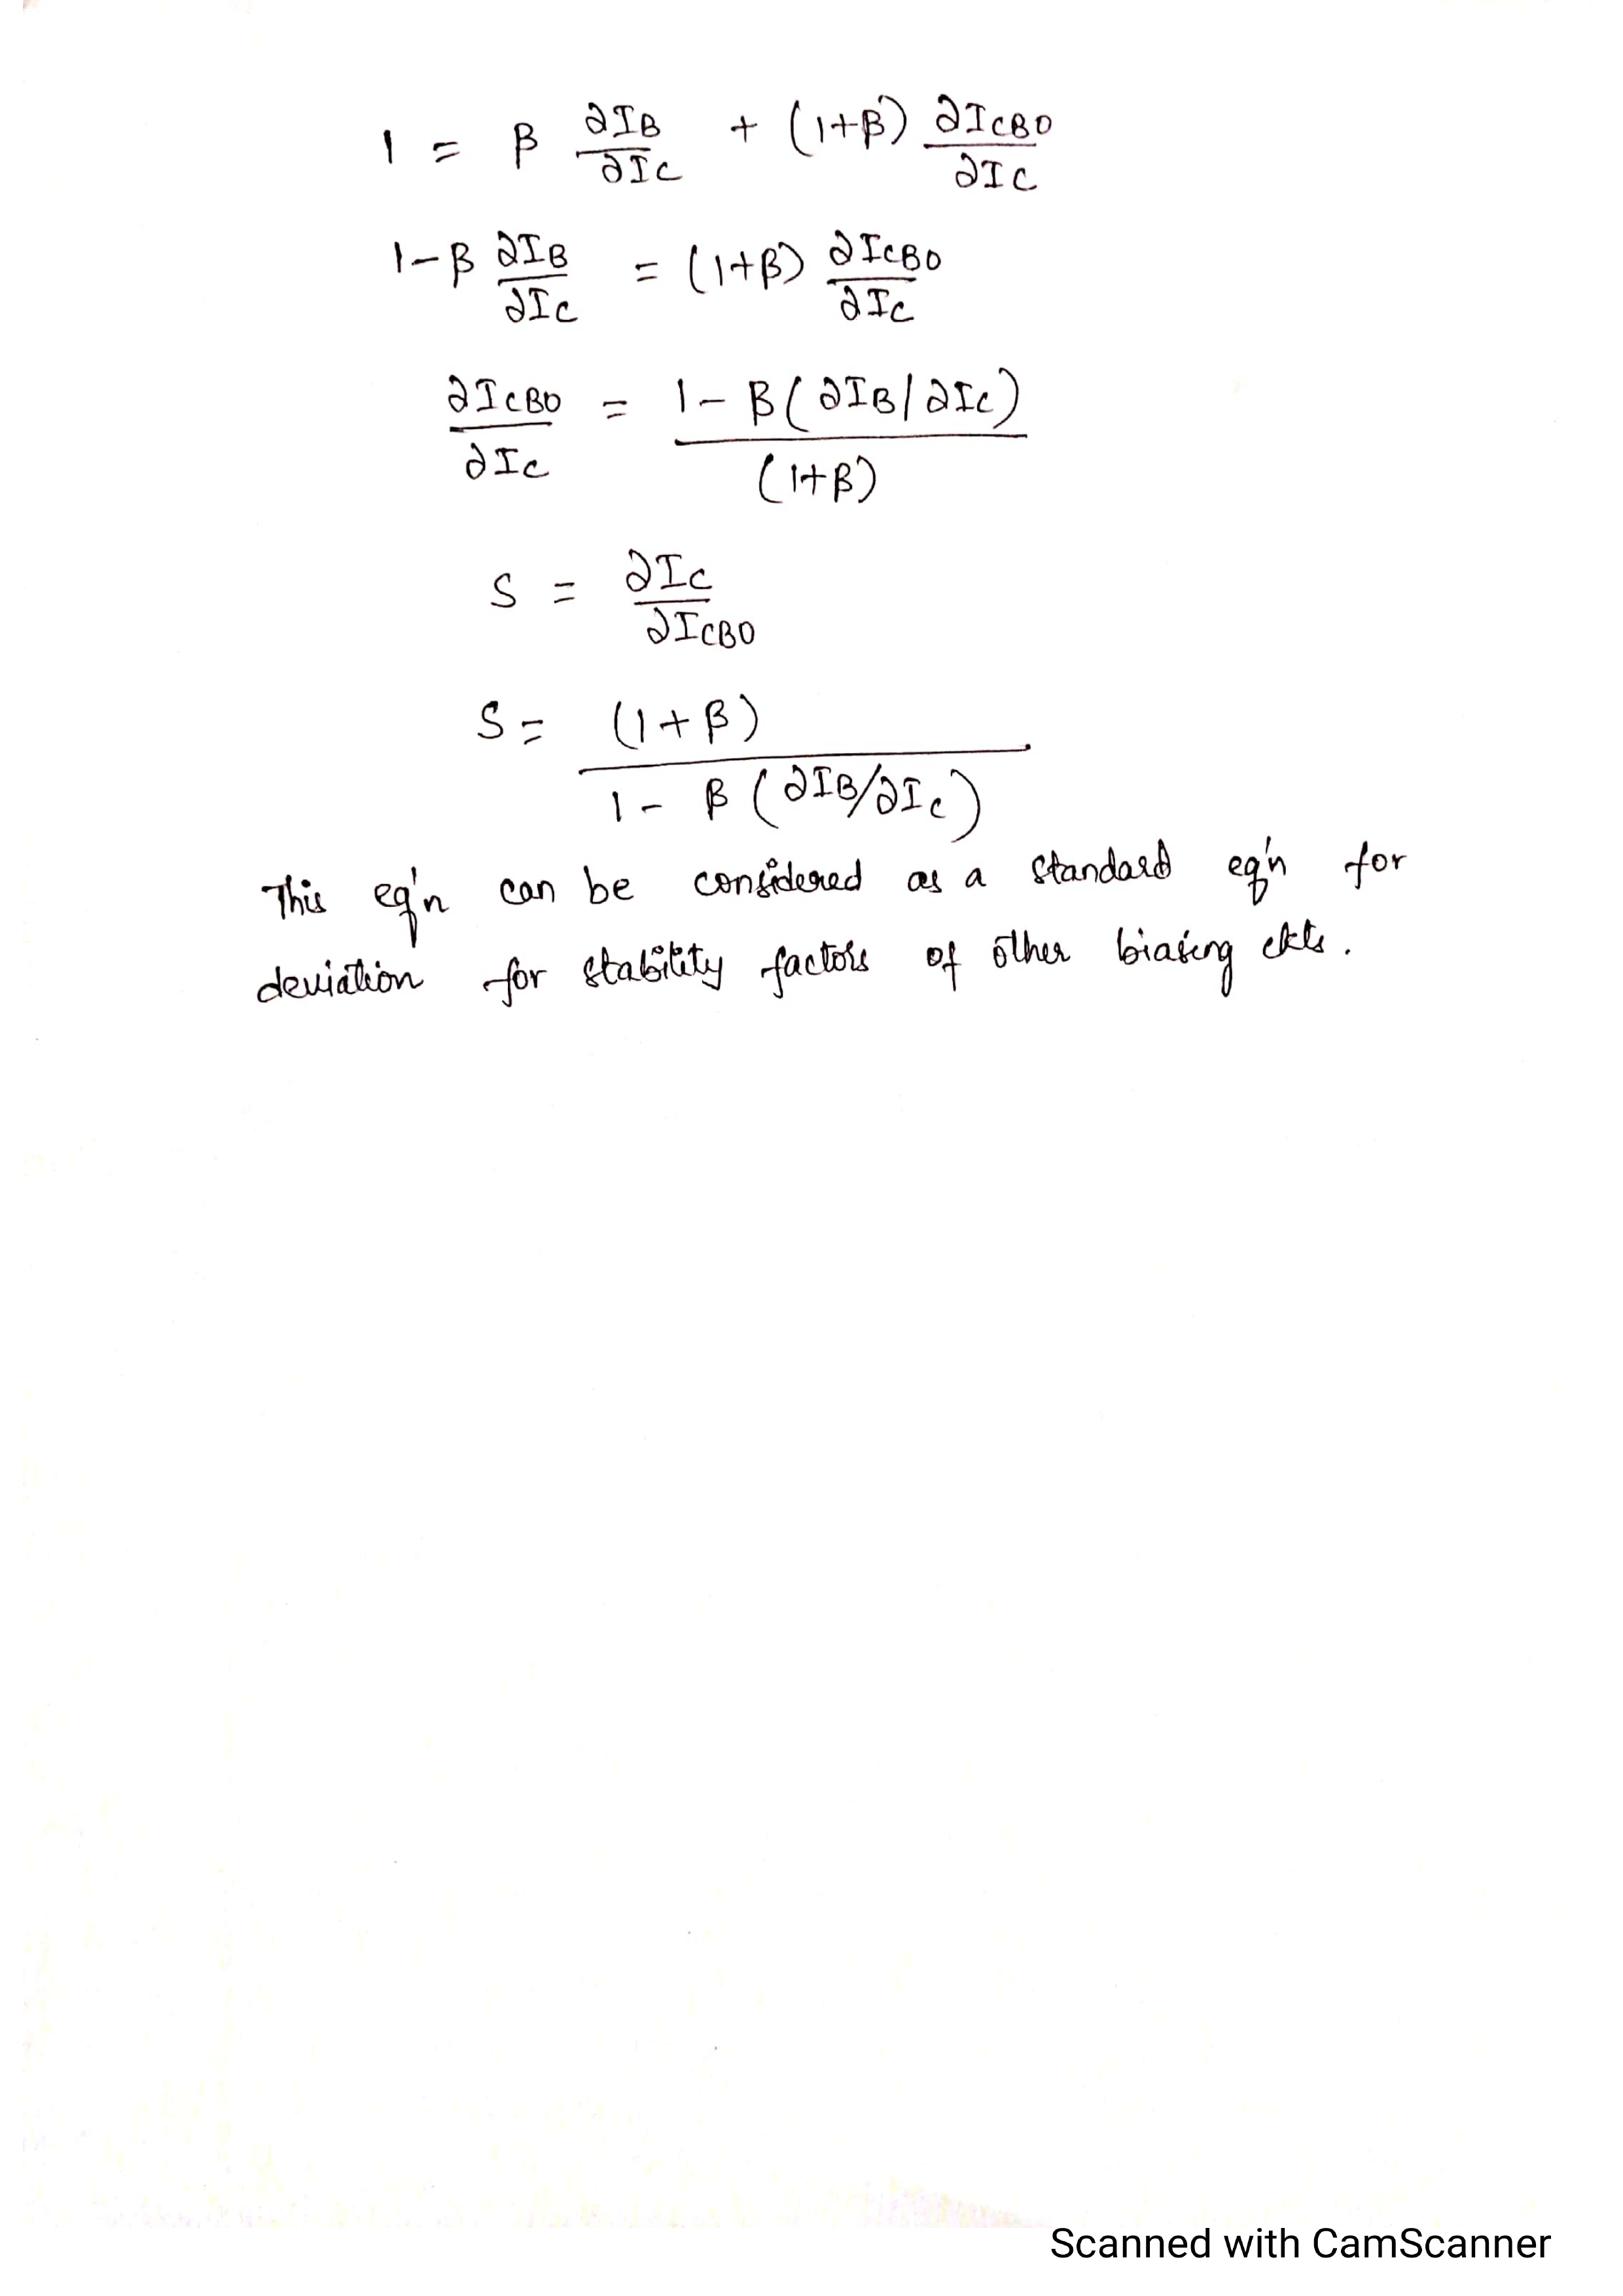 1 = β ∂IB/∂IC + (1+β) ∂ICBO/∂IC
1-β ∂IB/∂IC = (1+β) ∂ICBO/∂IC
∂ICBO/∂IC = 1-β(∂IB/∂IC)/(1+β)
S = ∂IC/∂ICBO
S = (1+β)/1-β(∂IB/∂IC)
This eq'n can be considered as a standard eq'n for
deviation for stability factors of other biasing ckts.
Scanned with CamScanner